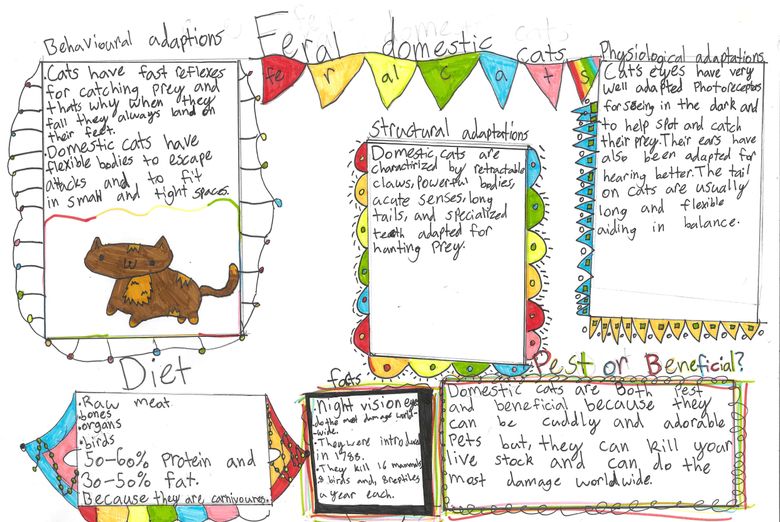 Behavioural adaptions
Feral domestic cats
fe r al c a t s
Physiological adaptations
. Cats have fast reflexes
for catching prey and
thats why when they
fall they always land on
their feet.
. Domestic cats have
flexible bodies to escape
attacks and to fit
in small and tight spaces.
Structural adaptations
Domestic cats are
charactirized by retractable
claws, powerful bodies,
acute senses, long
tails, and specialized
teeth adapted for
hunting prey.
Cats eyes have very
well adapted Photoreceptors
for seeing in the dark and
to help spot and catch
their prey. Their ears have
also been adapted for
hearing better. The tail
on cats are usually
long and flexible
aiding in balance.
Diet
. Raw meat
. bones
. organs
. birds
50-60% Protein and
30-50% fat.
Because they are carnivoures.
facts
. Night vision eyes
. do the most damage world-
wide.
. They were introduced
in 1788.
. They kill 16 mammals,
8 birds and, 8 reptiles
a year each.
Pest or Beneficial?
Domestic cats are Both pest
and beneficial because they
can be cuddly and adorable
Pets but, they can kill your
live stock and can do the
most damage worldwide.